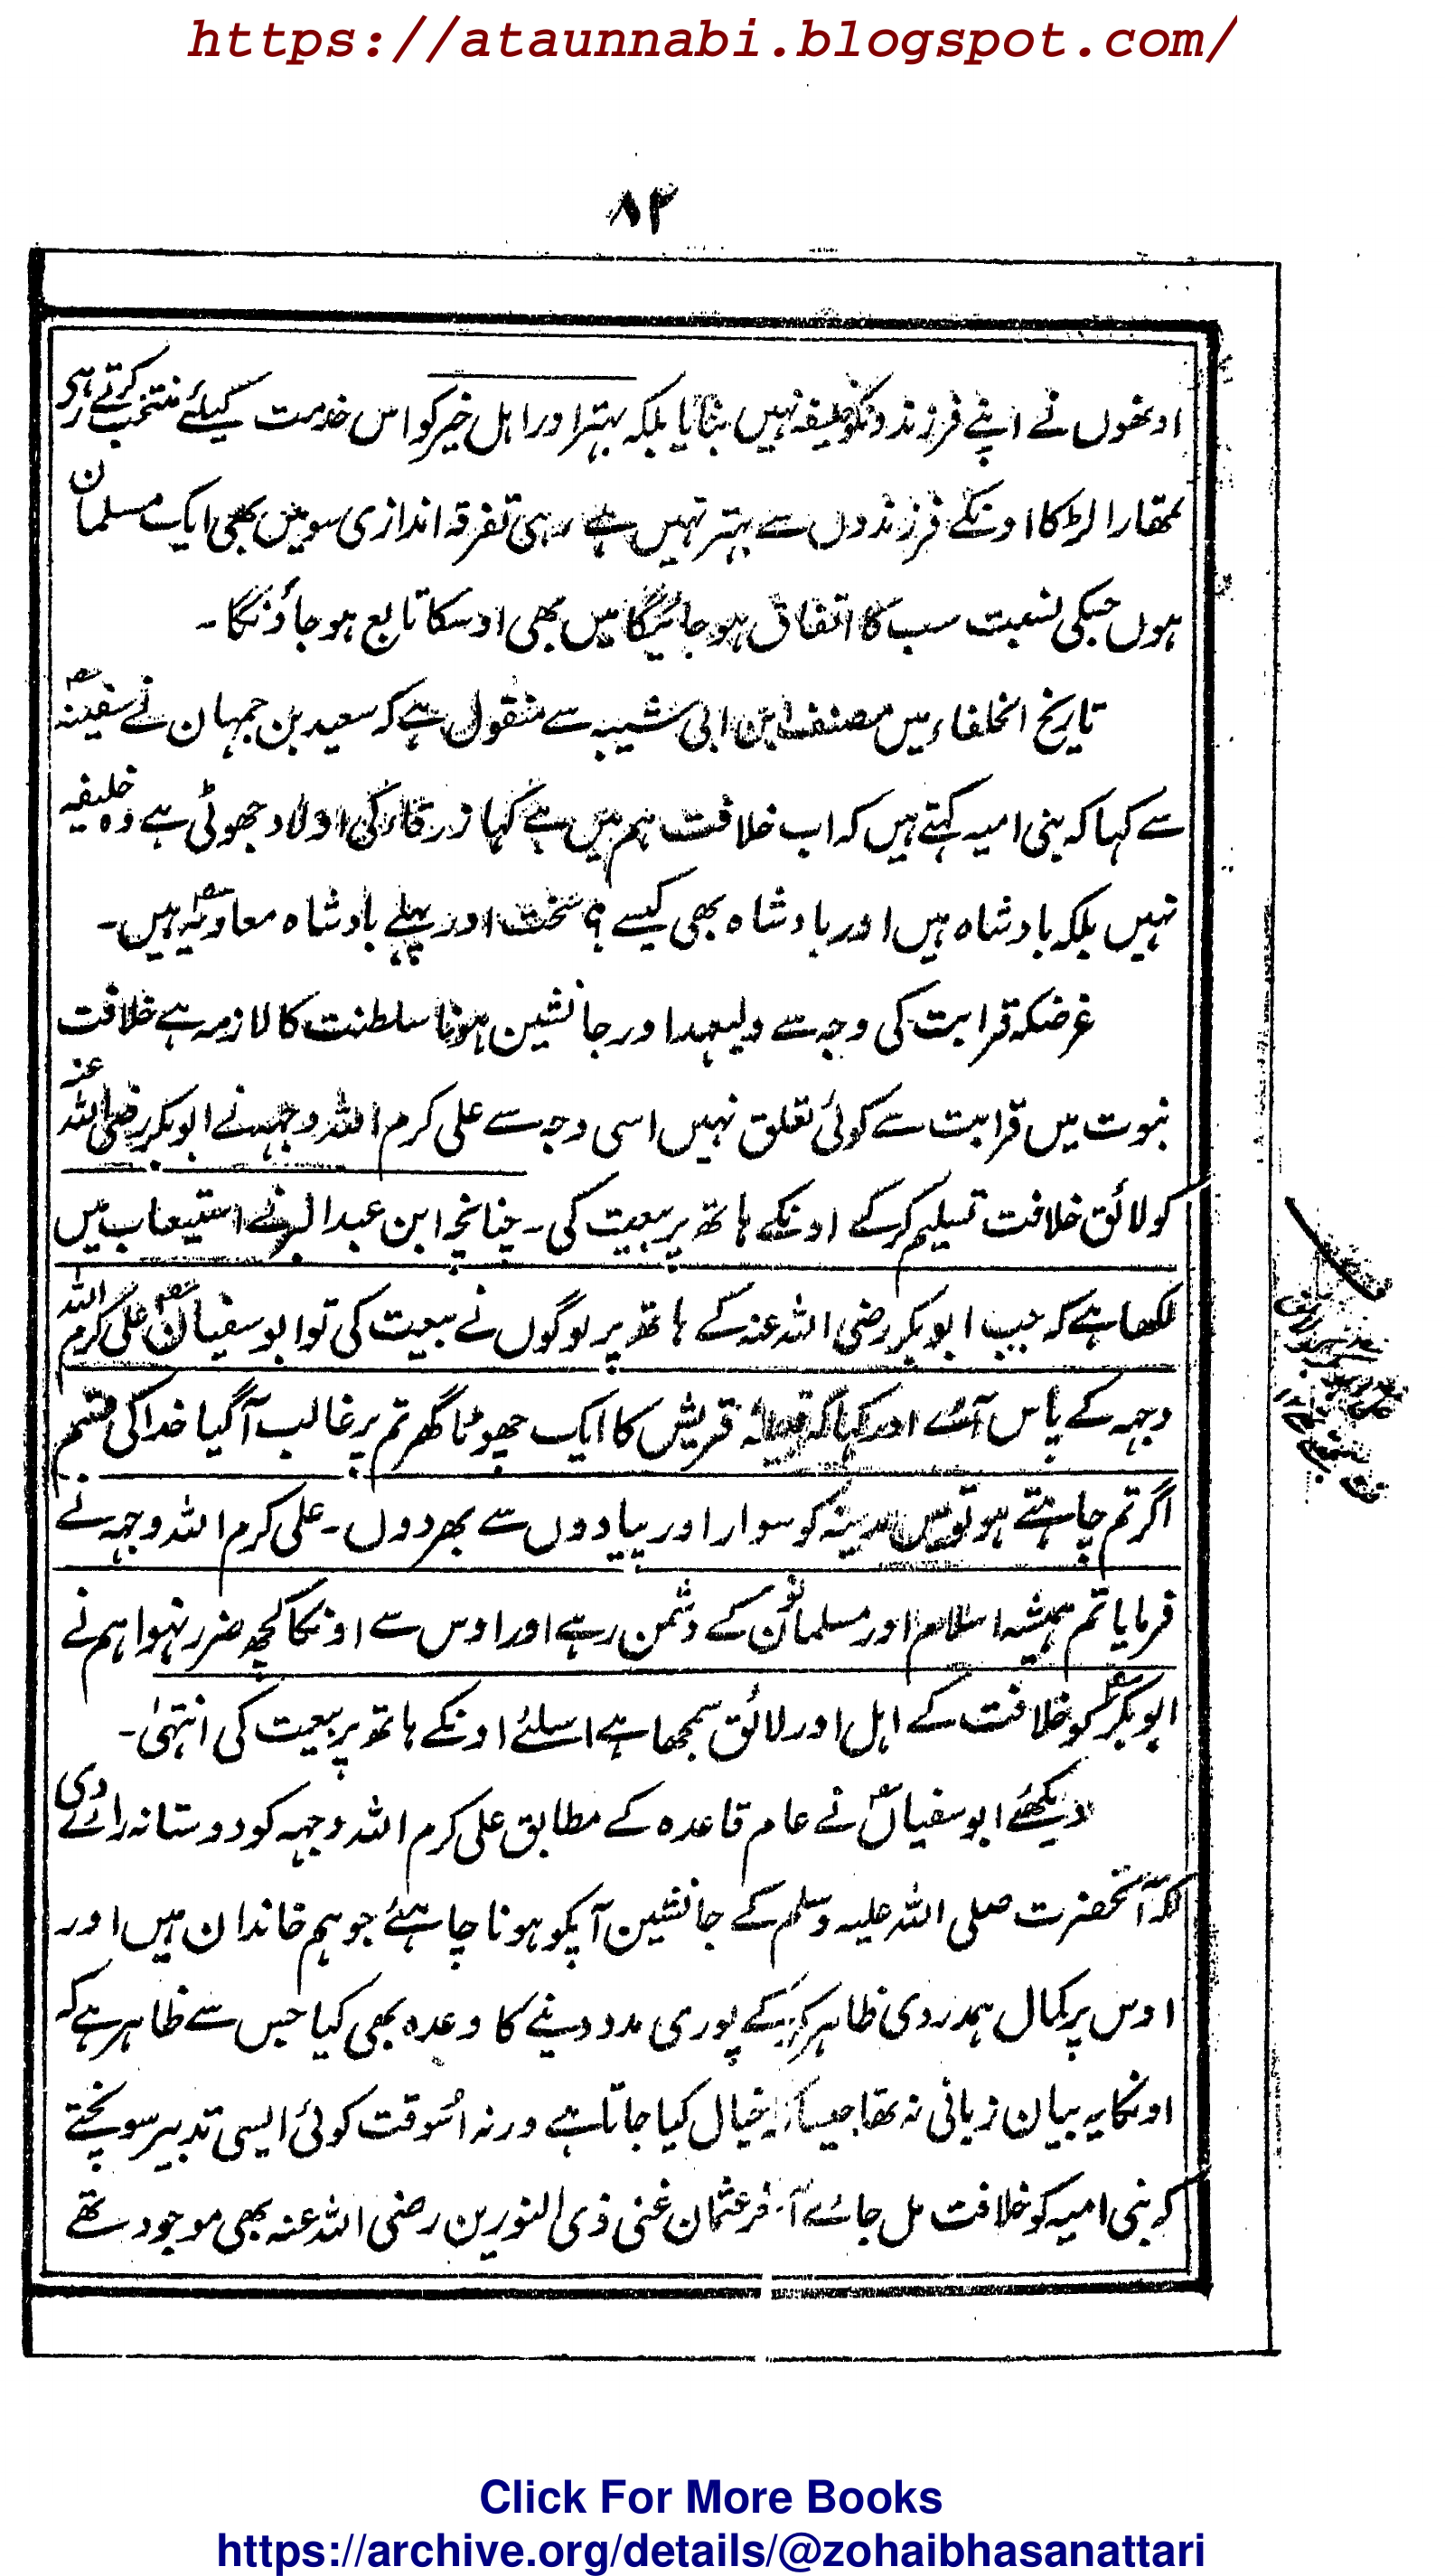 https://ataunnabi.blogspot.com/
۸۲
اونھوں نے اپنے فرزندونکو خلیفہ نہیں بنایا بلکہ بہتر اور اہل خیر کو اس خدمت کیلئے منتخب کرتے رہی
تمھارا لڑکا اونکے فرزندوں سے بہتر نہیں ہے رہی تفرقہ اندازی سو میں بھی ایک مسلمان
ہوں جسکی نسبت سب کا اتفاق ہو جائیگا میں بھی اوسکا تابع ہو جاؤنگا۔
تاریخ الخلفاء میں مصنف ابن ابی شیبہ سے منقول ہے کہ سعید بن جمہان نے سفینہؓ
سے کہا کہ بنی امیہ کہتے ہیں کہ اب خلافت ہم میں ہے کہا زرقاء کی اولاد جھوٹی ہے وہ خلیفہ
نہیں بلکہ بادشاہ ہیں اور بادشاہ بھی کیسے ؟ سخت اور پہلے بادشاہ معاویہؓ ہیں۔
غرضکہ قرابت کی وجہ سے ولیعہد اور جانشین ہونا سلطنت کا لازمہ ہے خلافت
نبوت میں قرابت سے کوئی تعلق نہیں اسی وجہ سے علی کرم اللہ وجہہ نے ابوبکر رضی اللہ عنہ
کو لائق خلافت تسلیم کرکے اونکے ہاتھ پر بیعت کی۔ چنانچہ ابن عبدالبر نے استیعاب میں
لکھا ہے کہ جب ابوبکر رضی اللہ عنہ کے ہاتھ پر لوگوں نے بیعت کی تو ابوسفیانؓ علی کرم اللہ
وجہہ کے پاس آئے اور کہا کہ قبیلہ قریش کا ایک چھوٹا گھر تم پر غالب آگیا خدا کی قسم
اگر تم چاہتے ہو تو میں مدینہ کو سوار اور پیادوں سے بھر دوں۔ علی کرم اللہ وجہہ نے
فرمایا تم ہمیشہ اسلام اور مسلمانوں کے دشمن رہے اور اوس سے اونکا کچھ ضرر نہوا ہم نے
ابوبکرؓ کو خلافت کے اہل اور لائق سمجھا ہے اسلئے اونکے ہاتھ پر بیعت کی انتہیٰ۔
دیکھئے ابوسفیانؓ نے عام قاعدہ کے مطابق علی کرم اللہ وجہہ کو دوستانہ رائے دی
کہ آنحضرت صلی اللہ علیہ وسلم کے جانشین آپکو ہونا چاہئے جو ہم خاندان ہیں اور
اوس پر کمال ہمدردی ظاہر کرکے پوری مدد دینے کا وعدہ بھی کیا جس سے ظاہر ہے کہ
اونکا یہ بیان زبانی نہ تھا جیسا کہ خیال کیا جاتا ہے ورنہ اسوقت کوئی ایسی تدبیر سونچتے
کہ بنی امیہ کو خلافت مل جائے آخر عثمان غنی ذی النورین رضی اللہ عنہ بھی موجود تھے
Click For More Books
https://archive.org/details/@zohaibhasanattari